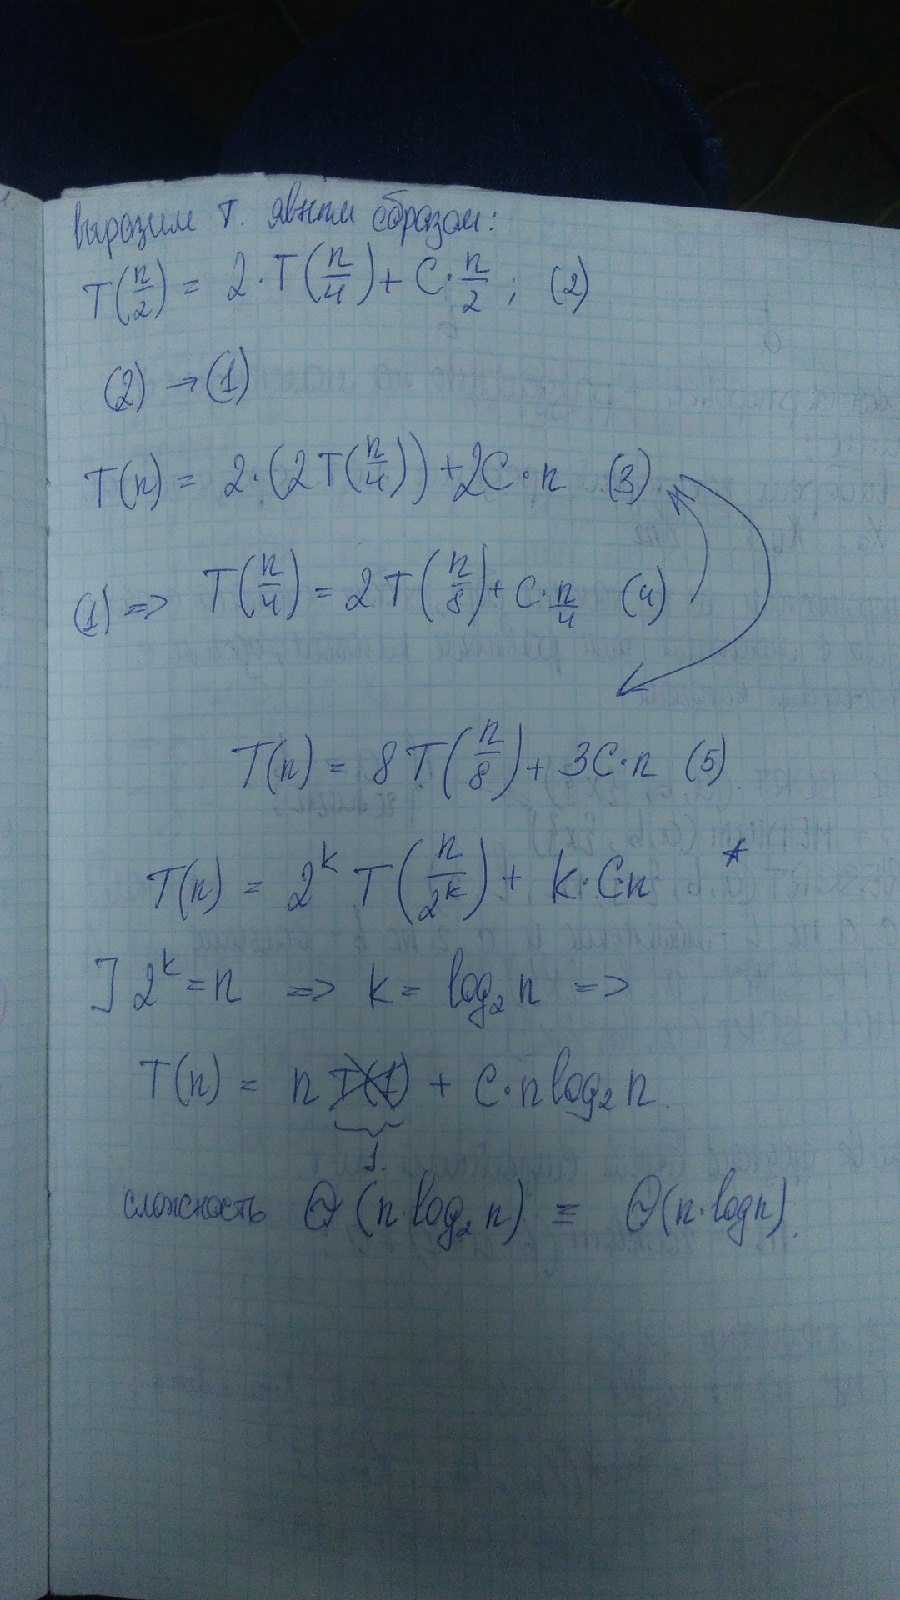 выразим T. явным образом:
T(n/2) = 2·T(n/4) + C·n/2 ; (2)
(2) → (1)
T(n) = 2·(2T(n/4)) + 2C·n (3)
(1) => T(n/4) = 2T(n/8) + C·n/4 (4)
T(n) = 8T(n/8) + 3C·n (5)
T(n) = 2^k T(n/2^k) + k·C·n *
] 2^k = n => k = log₂ n =>
T(n) = n T(1) + C·n log₂ n.
1.
сложность Θ(n·log₂ n) = Θ(n·log n).